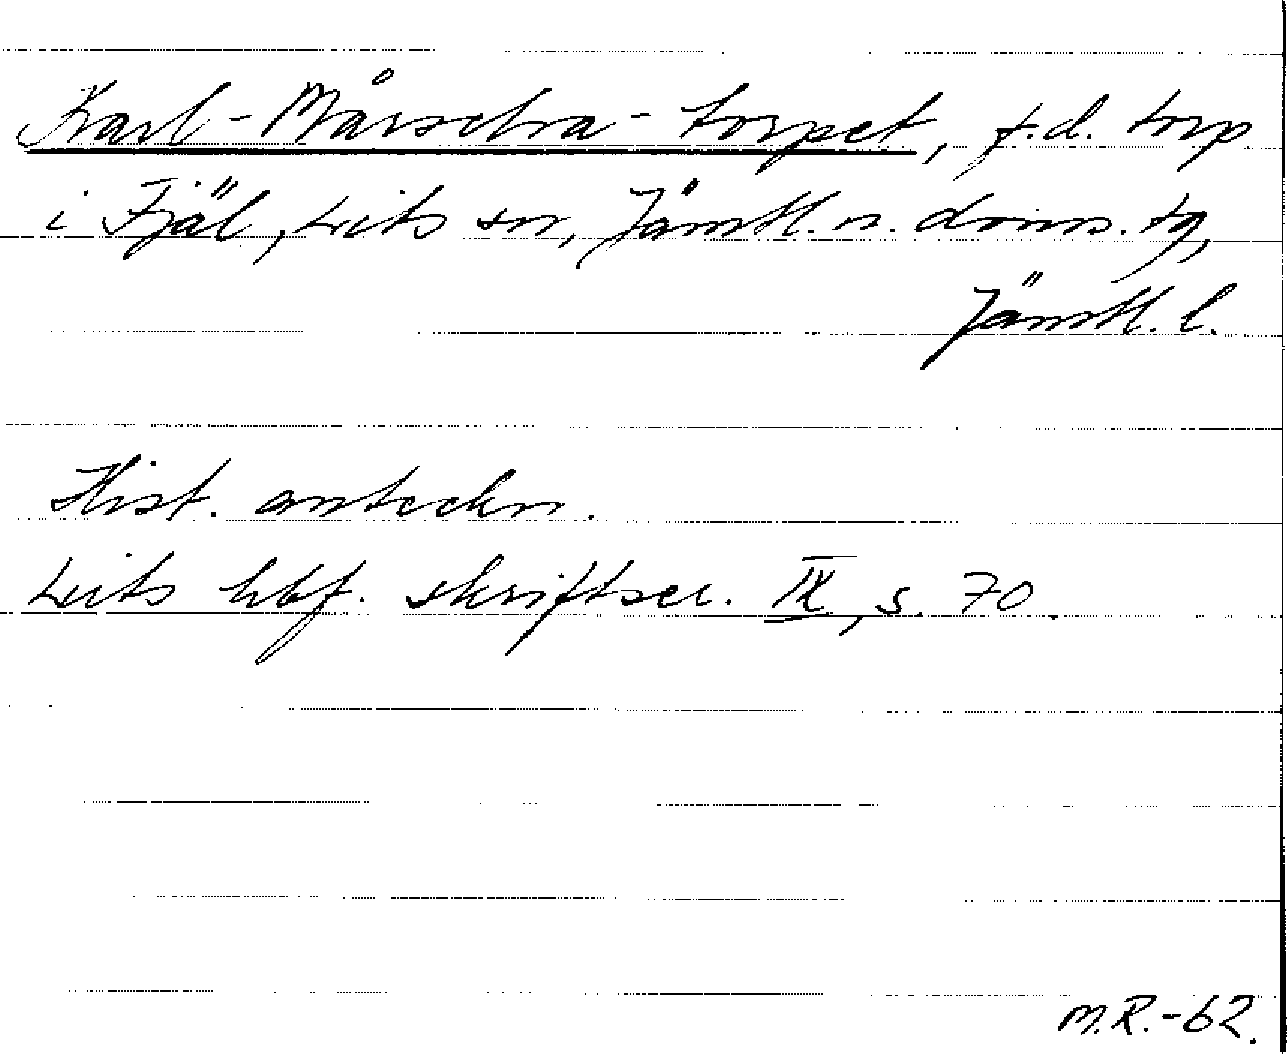 Karl-Mårscha-torpet, f.d. torp
i Fjäl, Lits sn, Jämtl. n. doms. tg,
Jämtl. l.
Hist. anteckn.
Lits hbf. skriftser. IX, s. 70.
M.R.-62.